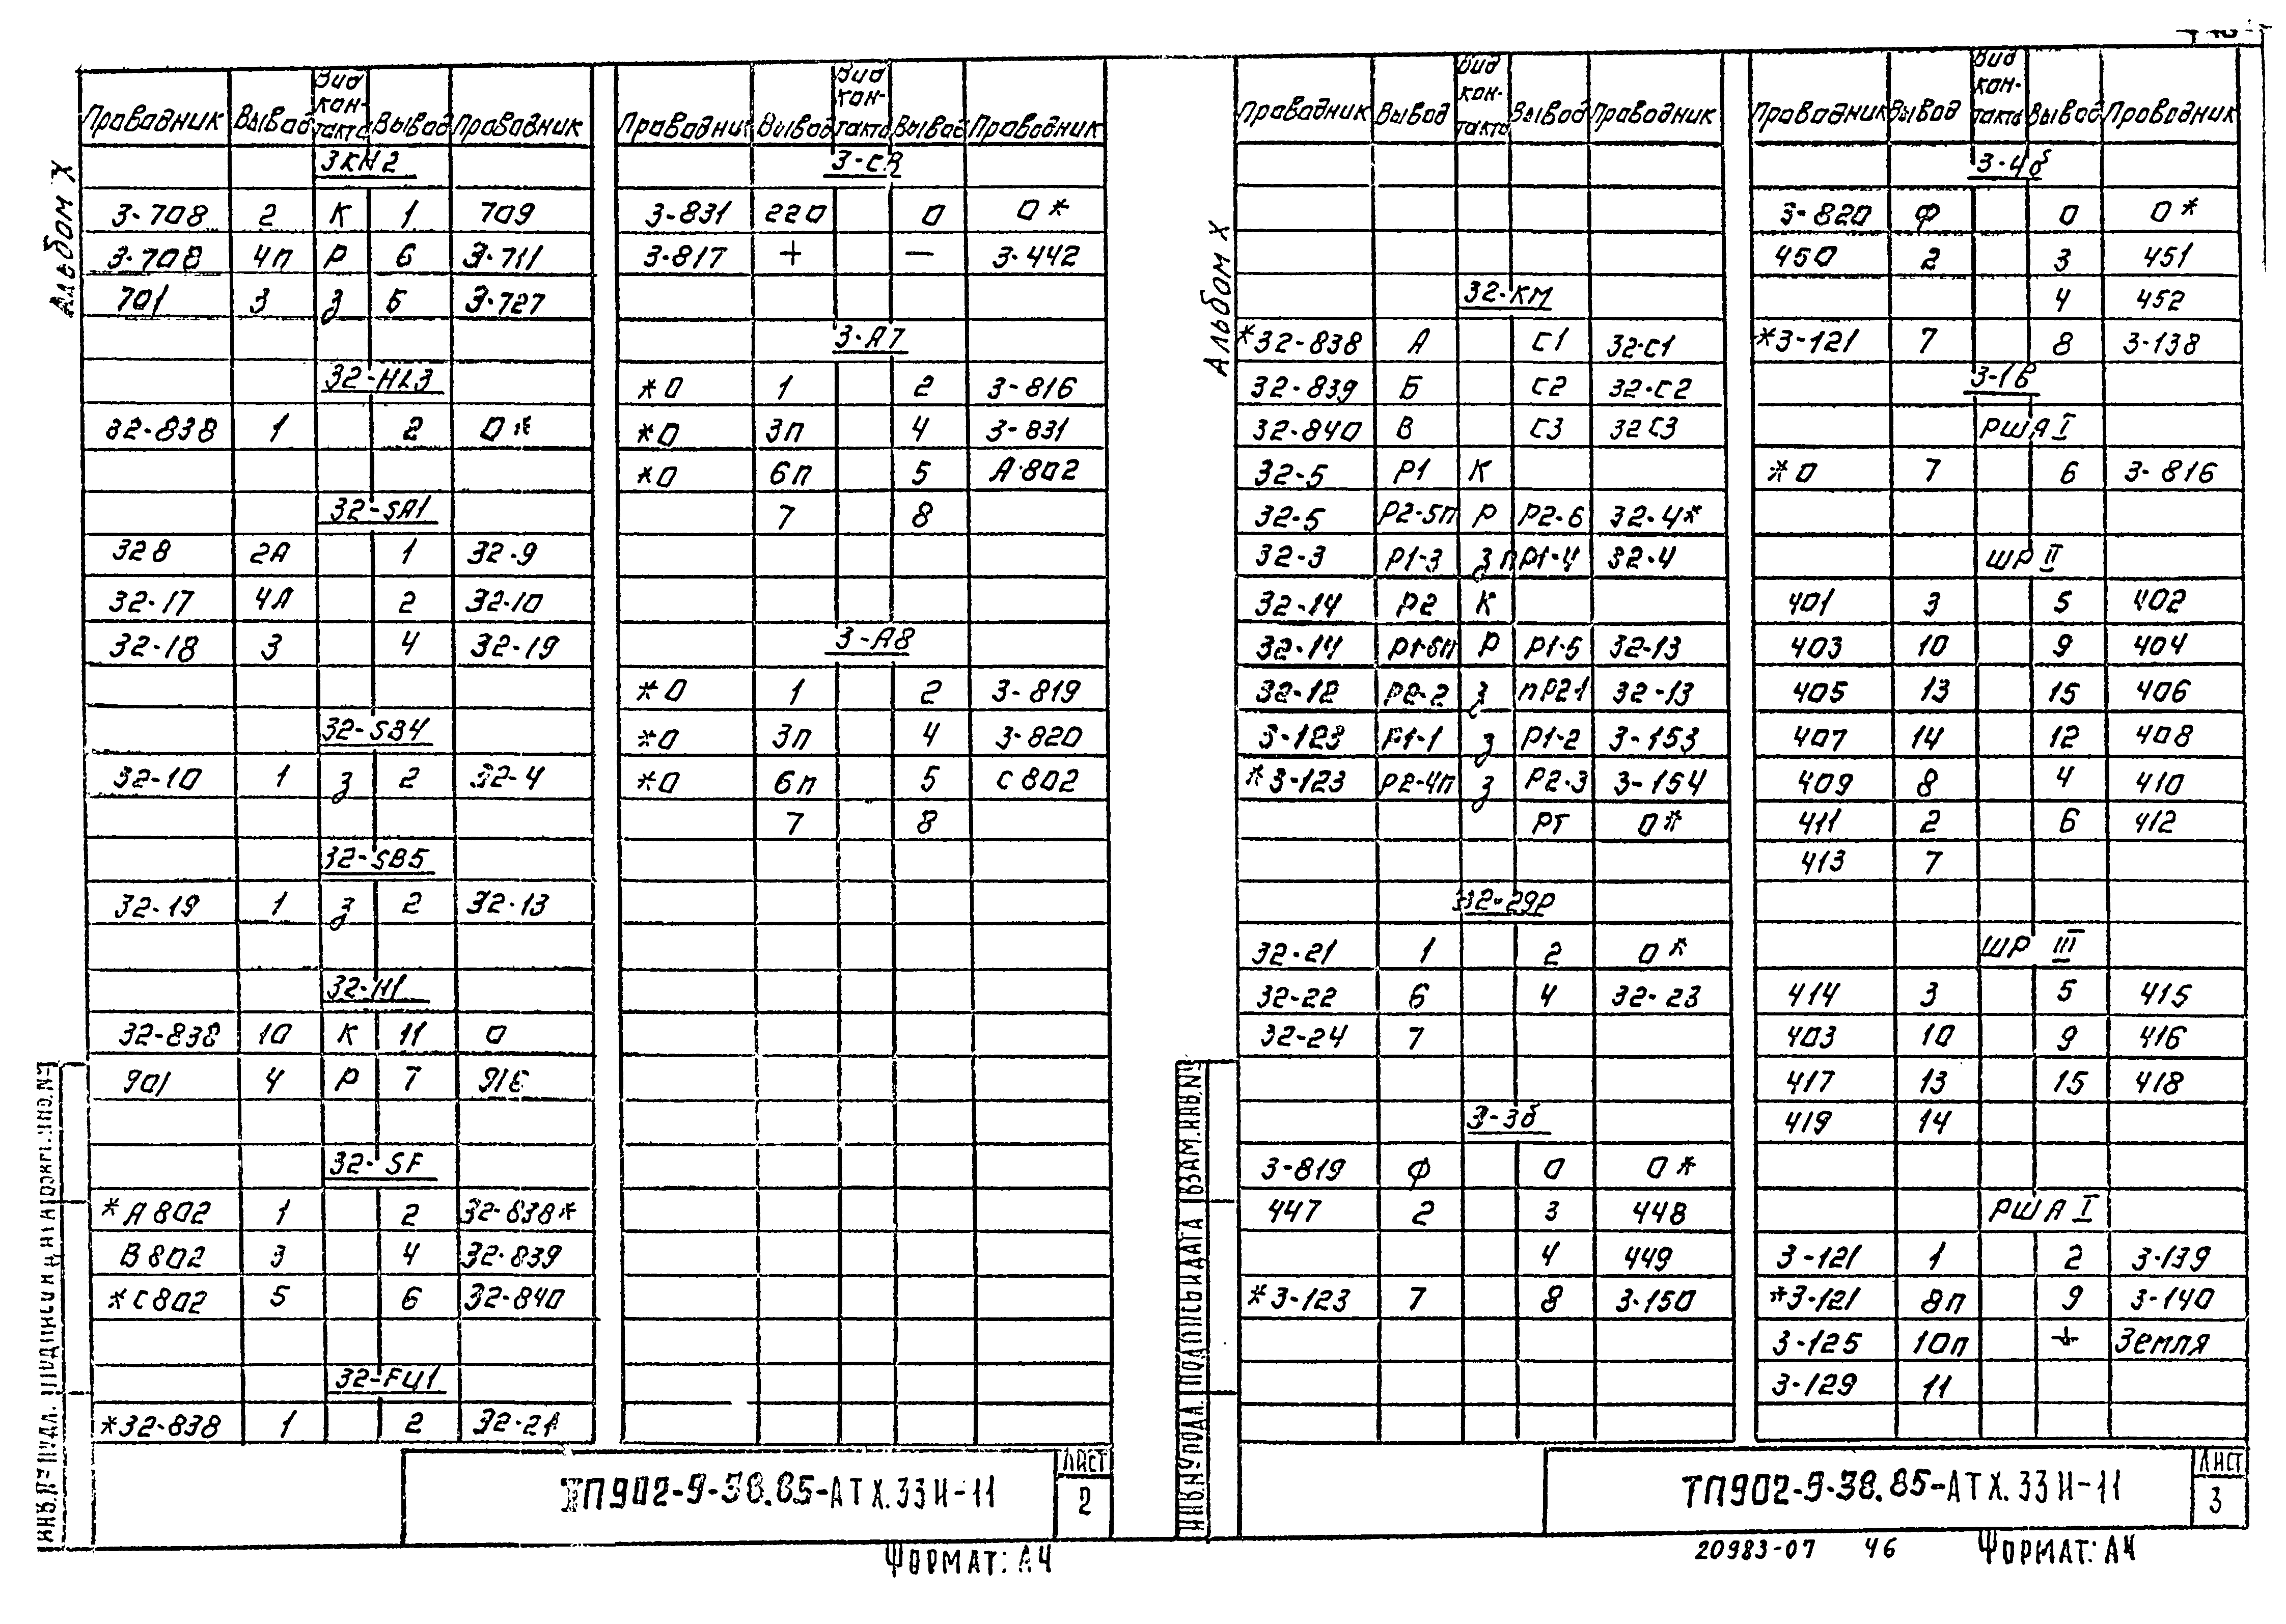 Альбом X
Проводник Вывод Вид контакта Вывод Проводник
3КН2
3-708 2 К 1 709
3-708 4п Р 6 3-711
701 3 З 5 3-727
32-HL3
32-838 1 2 0*
32-SA1
328 2А 1 32-9
32-17 4А 2 32-10
32-18 3 4 32-19
32-SB4
32-10 1 З 2 32-4
32-SB5
32-19 1 З 2 32-13
32-Н1
32-838 10 К 11 0
901 4 Р 7
32-SF
*А802 1 2 32-838*
В802 3 4 32-839
*С802 5 6 32-840
32-FU1
*32-838 1 2
ТП902-9-38.85-АТХ.33И-11
Лист
2
Формат: А4
Проводник Вывод Вид контакта Вывод Проводник
3-831 220 0 0*
3-817 + — 3-442
3-А7
*0 1 2 3-816
*0 3п 4 3-831
*0 6п 5 А-802
7 8
3-А8
*0 1 2 3-819
*0 3п 4 3-820
*0 6п 5 С802
7 8
Альбом X
Проводник Вывод Вид контакта Вывод Проводник
32-КМ
*32-838 А С1 32-С1
32-839 Б С2 32-С2
32-840 В С3 32С3
32-5 Р1 К
32-5 Р2-5п Р Р2-6 32-4*
32-3 Р1-3 З пР1-4 32-4
32-14 Р2 К
32-14 Р1-6п Р Р1-5 32-13
32-12 Р2-2 З пР2-1 32-13
3-123 Р1-1 З Р1-2 3-153
*3-123 Р2-4п З Р2-3 3-154
РТ 0*
32-29Р
32-21 1 2 0*
32-22 6 4 32-23
32-24 7
3-3б
3-819 Ф 0 0*
447 2 3 448
4 449
*3-123 7 8 3-150
Проводник Вывод Вид контакта Вывод Проводник
3-4б
3-820 Ф 0 0*
450 2 3 451
4 452
*3-121 7 8 3-138
3-1в
РША I
*0 7 6 3-816
ШР II
401 3 5 402
403 10 9 404
405 13 15 406
407 14 12 408
409 8 4 410
411 2 6 412
413 7
ШР III
414 3 5 415
403 10 9 416
417 13 15 418
419 14
РША I
3-121 1 2 3-139
*3-121 8п 9 3-140
3-125 10п Земля
3-129 11
ТП902-9-38.85-АТХ.33И-11
Лист
3
ИНВ.№ПОДЛ. ПОДПИСЬ И ДАТА ВЗАМ.ИНВ.№
20983-07 46 Формат: А4